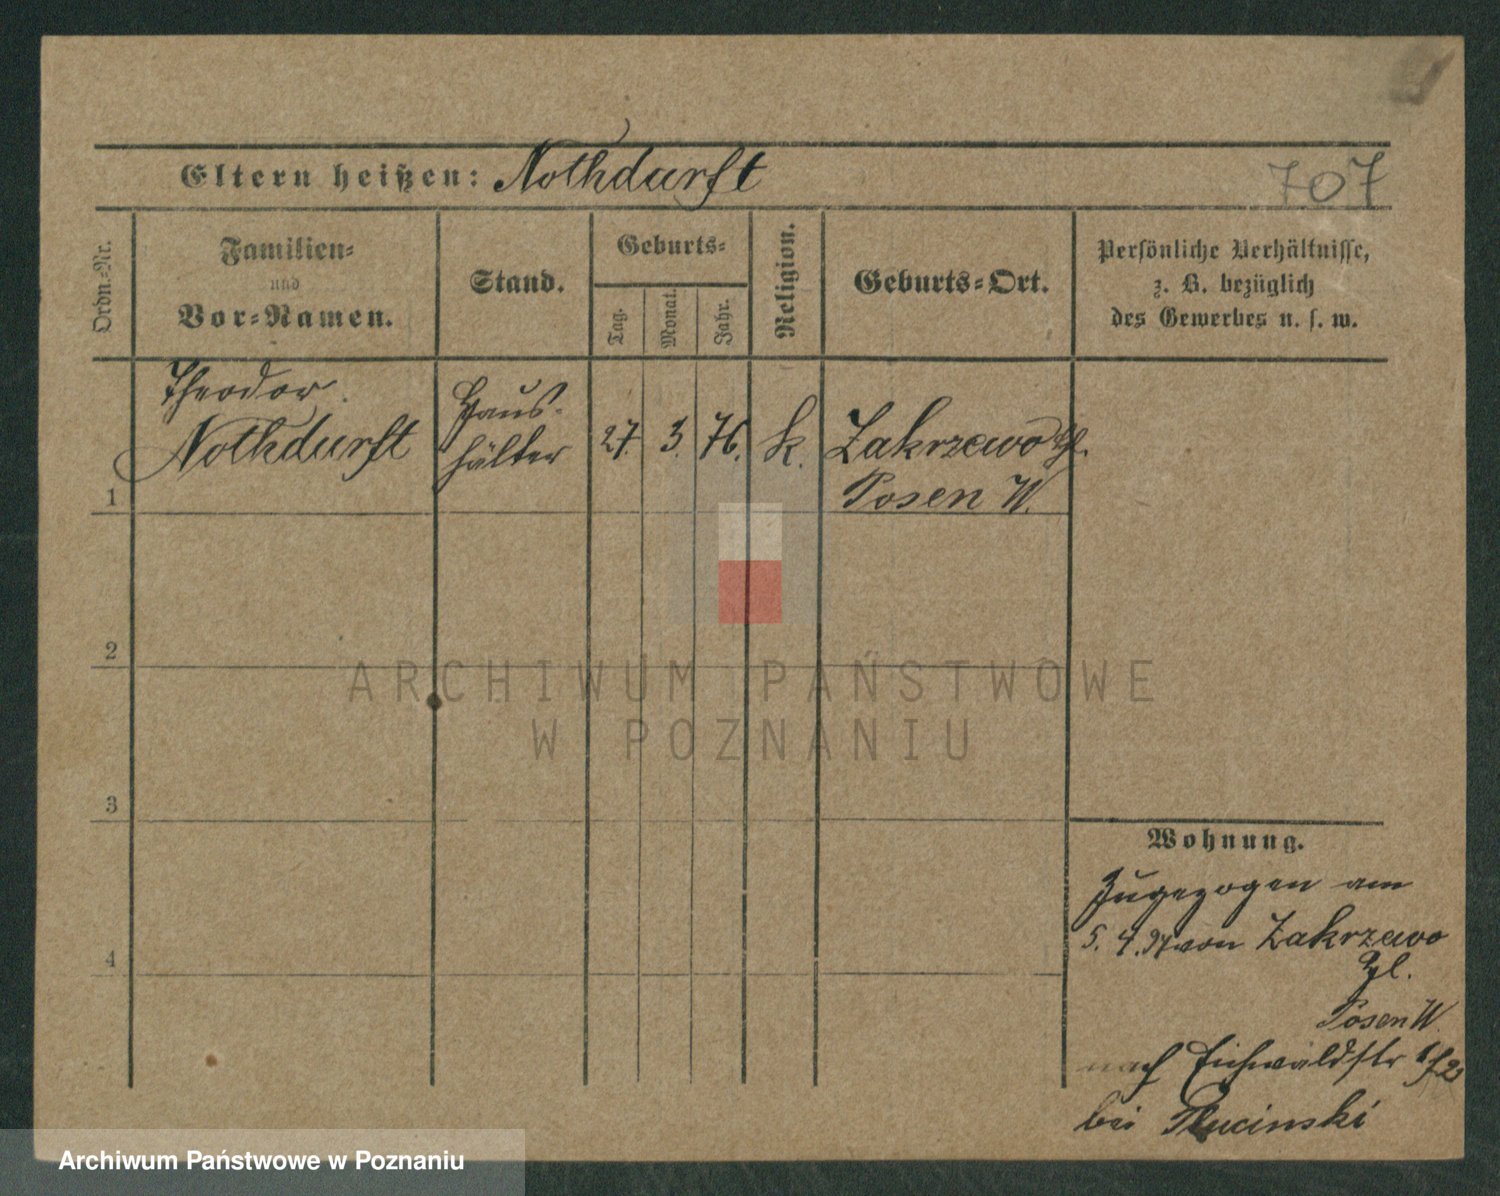 Eltern heißen: Nothdurft
707
Ordn.-Nr.
Familien-
und
Vor-Namen.
Stand.
Geburts-
Tag.
Monat.
Jahr.
Religion.
Geburts-Ort.
Persönliche Verhältnisse,
z. B. bezüglich
des Gewerbes u. s. w.
Theodor
Nothdurft
Haus-
hälter
27. 3. 76. k.
Zakrzewo
Posen W.
1
2
3
4
ARCHIWUM PAŃSTWOWE
W POZNANIU
Wohnung.
Zugezogen am
5. 4. 97 von Zakrzewo
Posen W.
nach Eichwaldstr
bei Plucinski
Archiwum Państwowe w Poznaniu